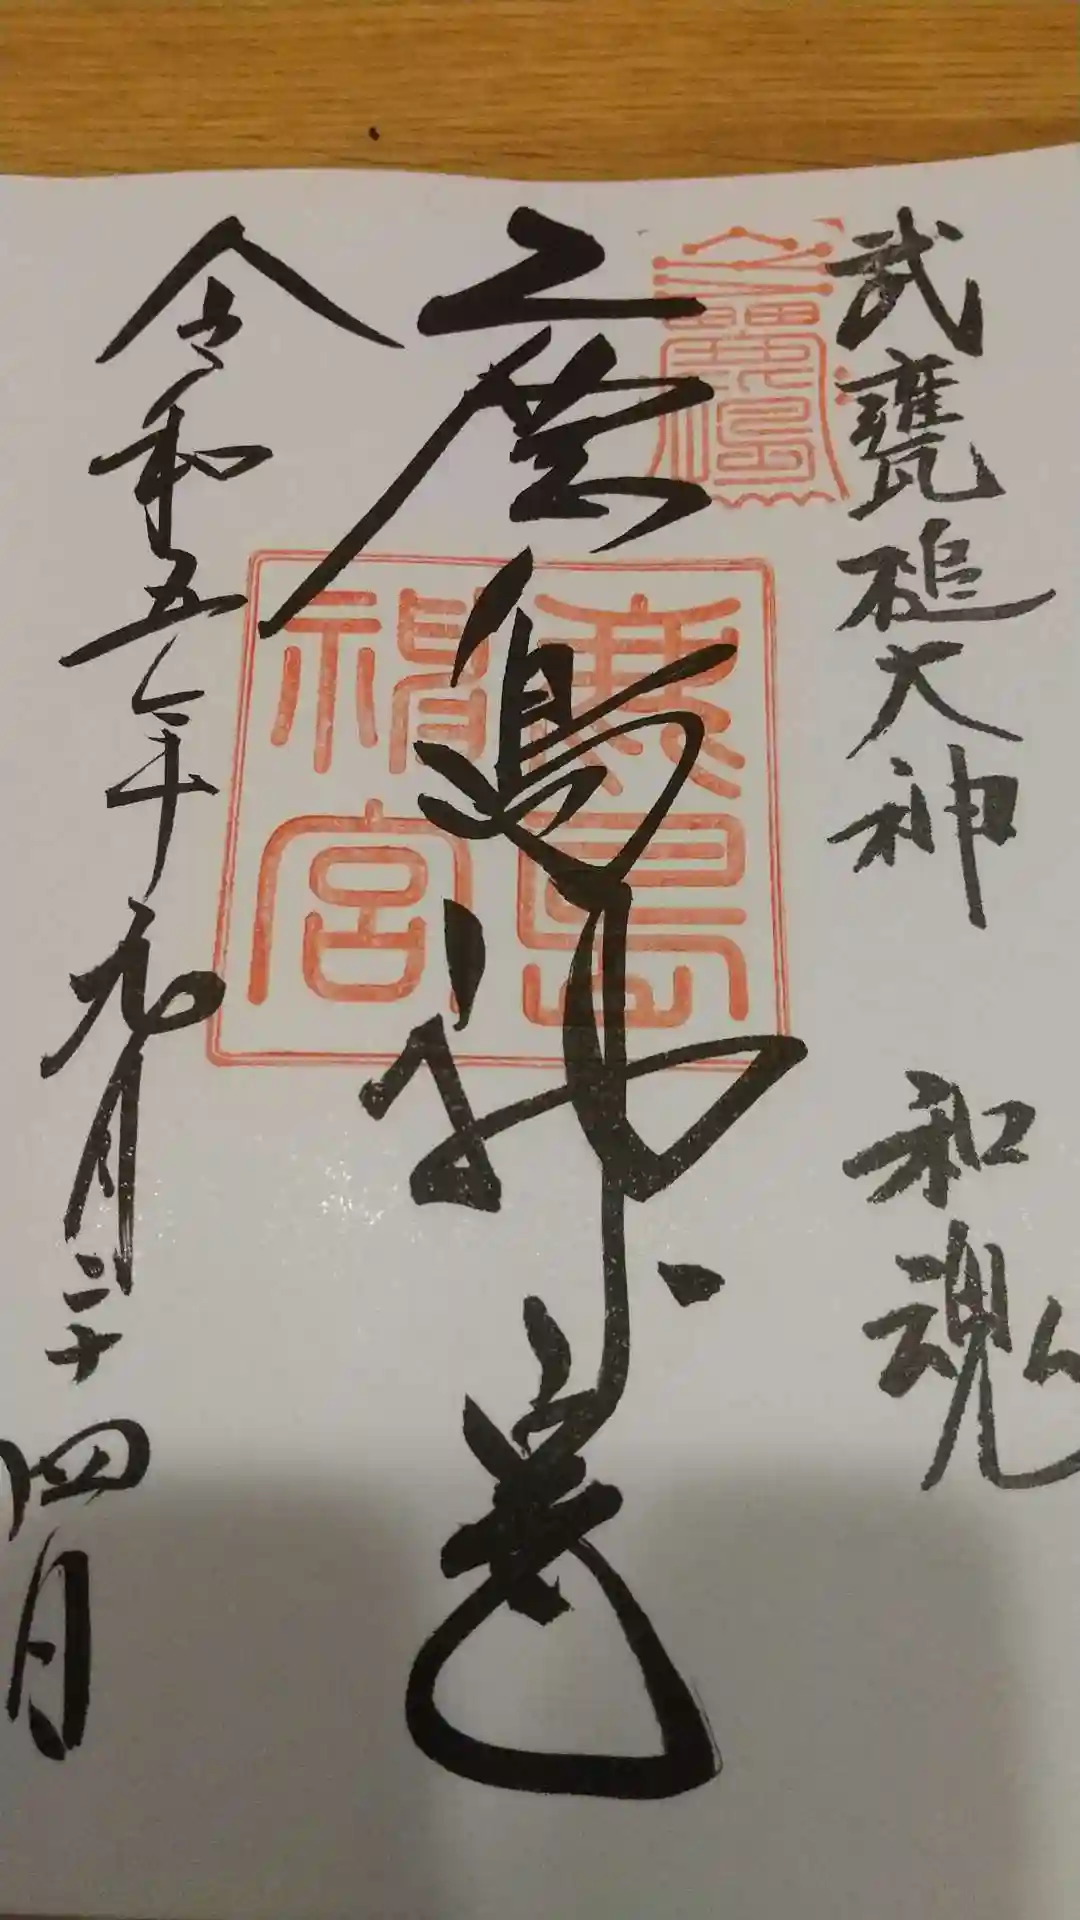 武甕槌大神 和魂
鹿島神宮
鹿島神宮
令和五年九月二十四日